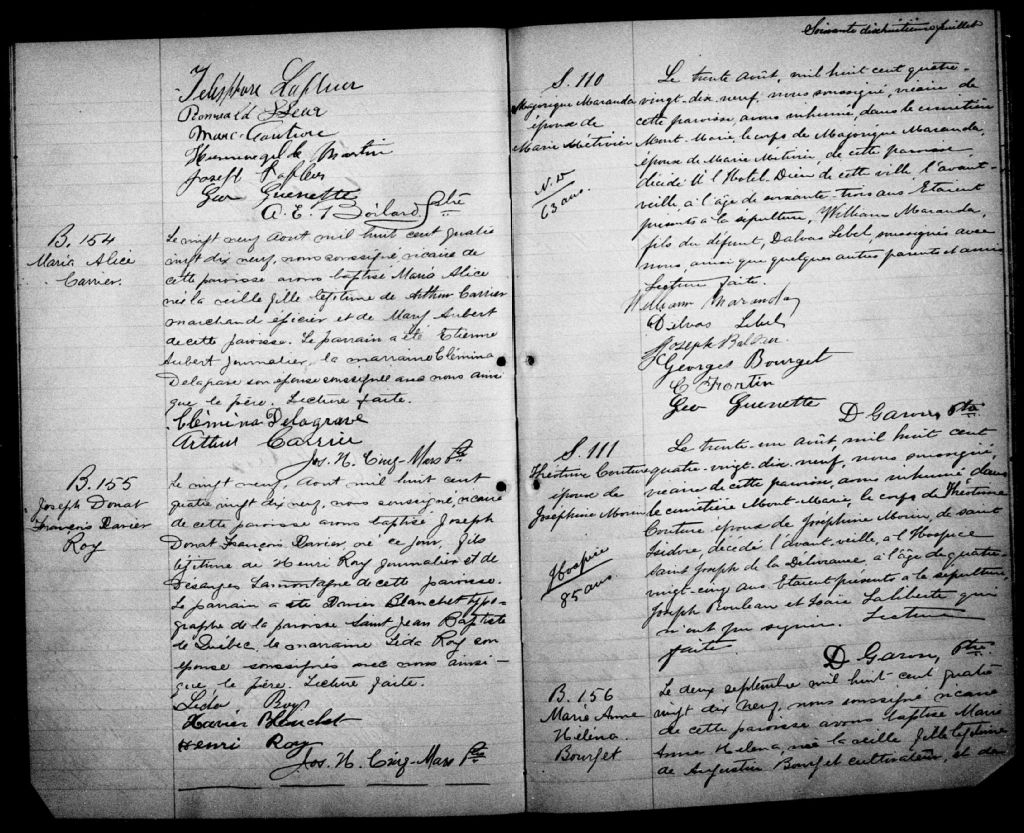 Telesphore Lafleur
Romuald
Marc Couture
Hermenegilde Martin
Joseph Lafleur
Geo Guenette
A. E. Boilard Ptre
B. 154
Maria Alice
Carrier.
Le vingt neuf Aout mil huit cent quatre
vingt dix neuf, nous soussigné vicaire de
cette paroisse avons baptisé Maria Alice
née la veille fille légitime de Arthur Carrier
marchand épicier et de Mary Aubert
de cette paroisse. Le parrain a été Etienne
Aubert journalier, la marraine Clémina
Delagrave son épouse soussignée avec nous ainsi
que le père. Lecture faite.
Clémina Delagrave
Arthur Carrier
Jos. N. Cinq-Mars Ptre
B. 155
Joseph Donat
François Xavier
Roy
Le vingt neuf, Aout mil huit cent
quatre vingt dix neuf, nous soussigné, vicaire
de cette paroisse avons baptisé Joseph
Donat François Xavier, né ce jour, fils
légitime de Henri Roy journalier et de
Désanges Lamontagne de cette paroisse.
Le parrain a été Xavier Blanchet typo-
graphe de la paroisse Saint Jean Baptiste
de Québec, la marraine Lida Roy son
épouse soussignés avec nous ainsi-
que le père. Lecture faite.
Lida Roy
Xavier Blanchet
Henri Roy
Jos. N. Cinq-Mars Ptre
Soixante dixhuitième feuillet
S. 110
Majorique Maranda
époux de
Marie Métivier
N. D
63 ans.
Le trente août, mil huit cent quatre-
vingt-dix-neuf, nous soussigné, vicaire de
cette paroisse, avons inhumé, dans le cimetière
Mont-Marie, le corps de Majorique Maranda,
époux de Marie Métivier, de cette paroisse,
décédé à l'Hotel-Dieu de cette ville l'avant-
veille, à l'âge de soixante-trois ans. Etaient
présents à la sépulture, William Maranda,
fils du défunt, Dalvas Lebel, soussignés avec
nous, ainsi que quelques autres parents et amis.
Lecture faite.
William Maranda
Dalvas Lebel
Joseph
Georges Bourget
C Fortin
Geo Guenette
D Garon, Ptre
S. 111
Théotime Couture
époux de
Joséphine Morin
Hospice
85 ans
Le trente-un août mil huit cent
quatre-vingt-dix-neuf, nous soussigné,
vicaire de cette paroisse, avons inhumé dans
le cimetière Mont-Marie, le corps de Théotime
Couture époux de Joséphine Morin, de saint
Isidore, décédé l'avant-veille, à l'Hospice
saint Joseph de la Délivrance, à l'âge de quatre-
vingt-cinq ans. Etaient présents à la sépulture,
Joseph Rouleau et Isaïe Laliberté qui
n'ont pu signer. Lecture
faite
D Garon, Ptre
B. 156
Marie Anne
Héléna
Bourget
Le deux septembre mil huit cent quatre
vingt dix neuf, nous soussigné vicaire
de cette paroisse avons baptisé Marie
Anne Héléna, née la veille fille légitime
de Augustin Bourget cultivateur, et de